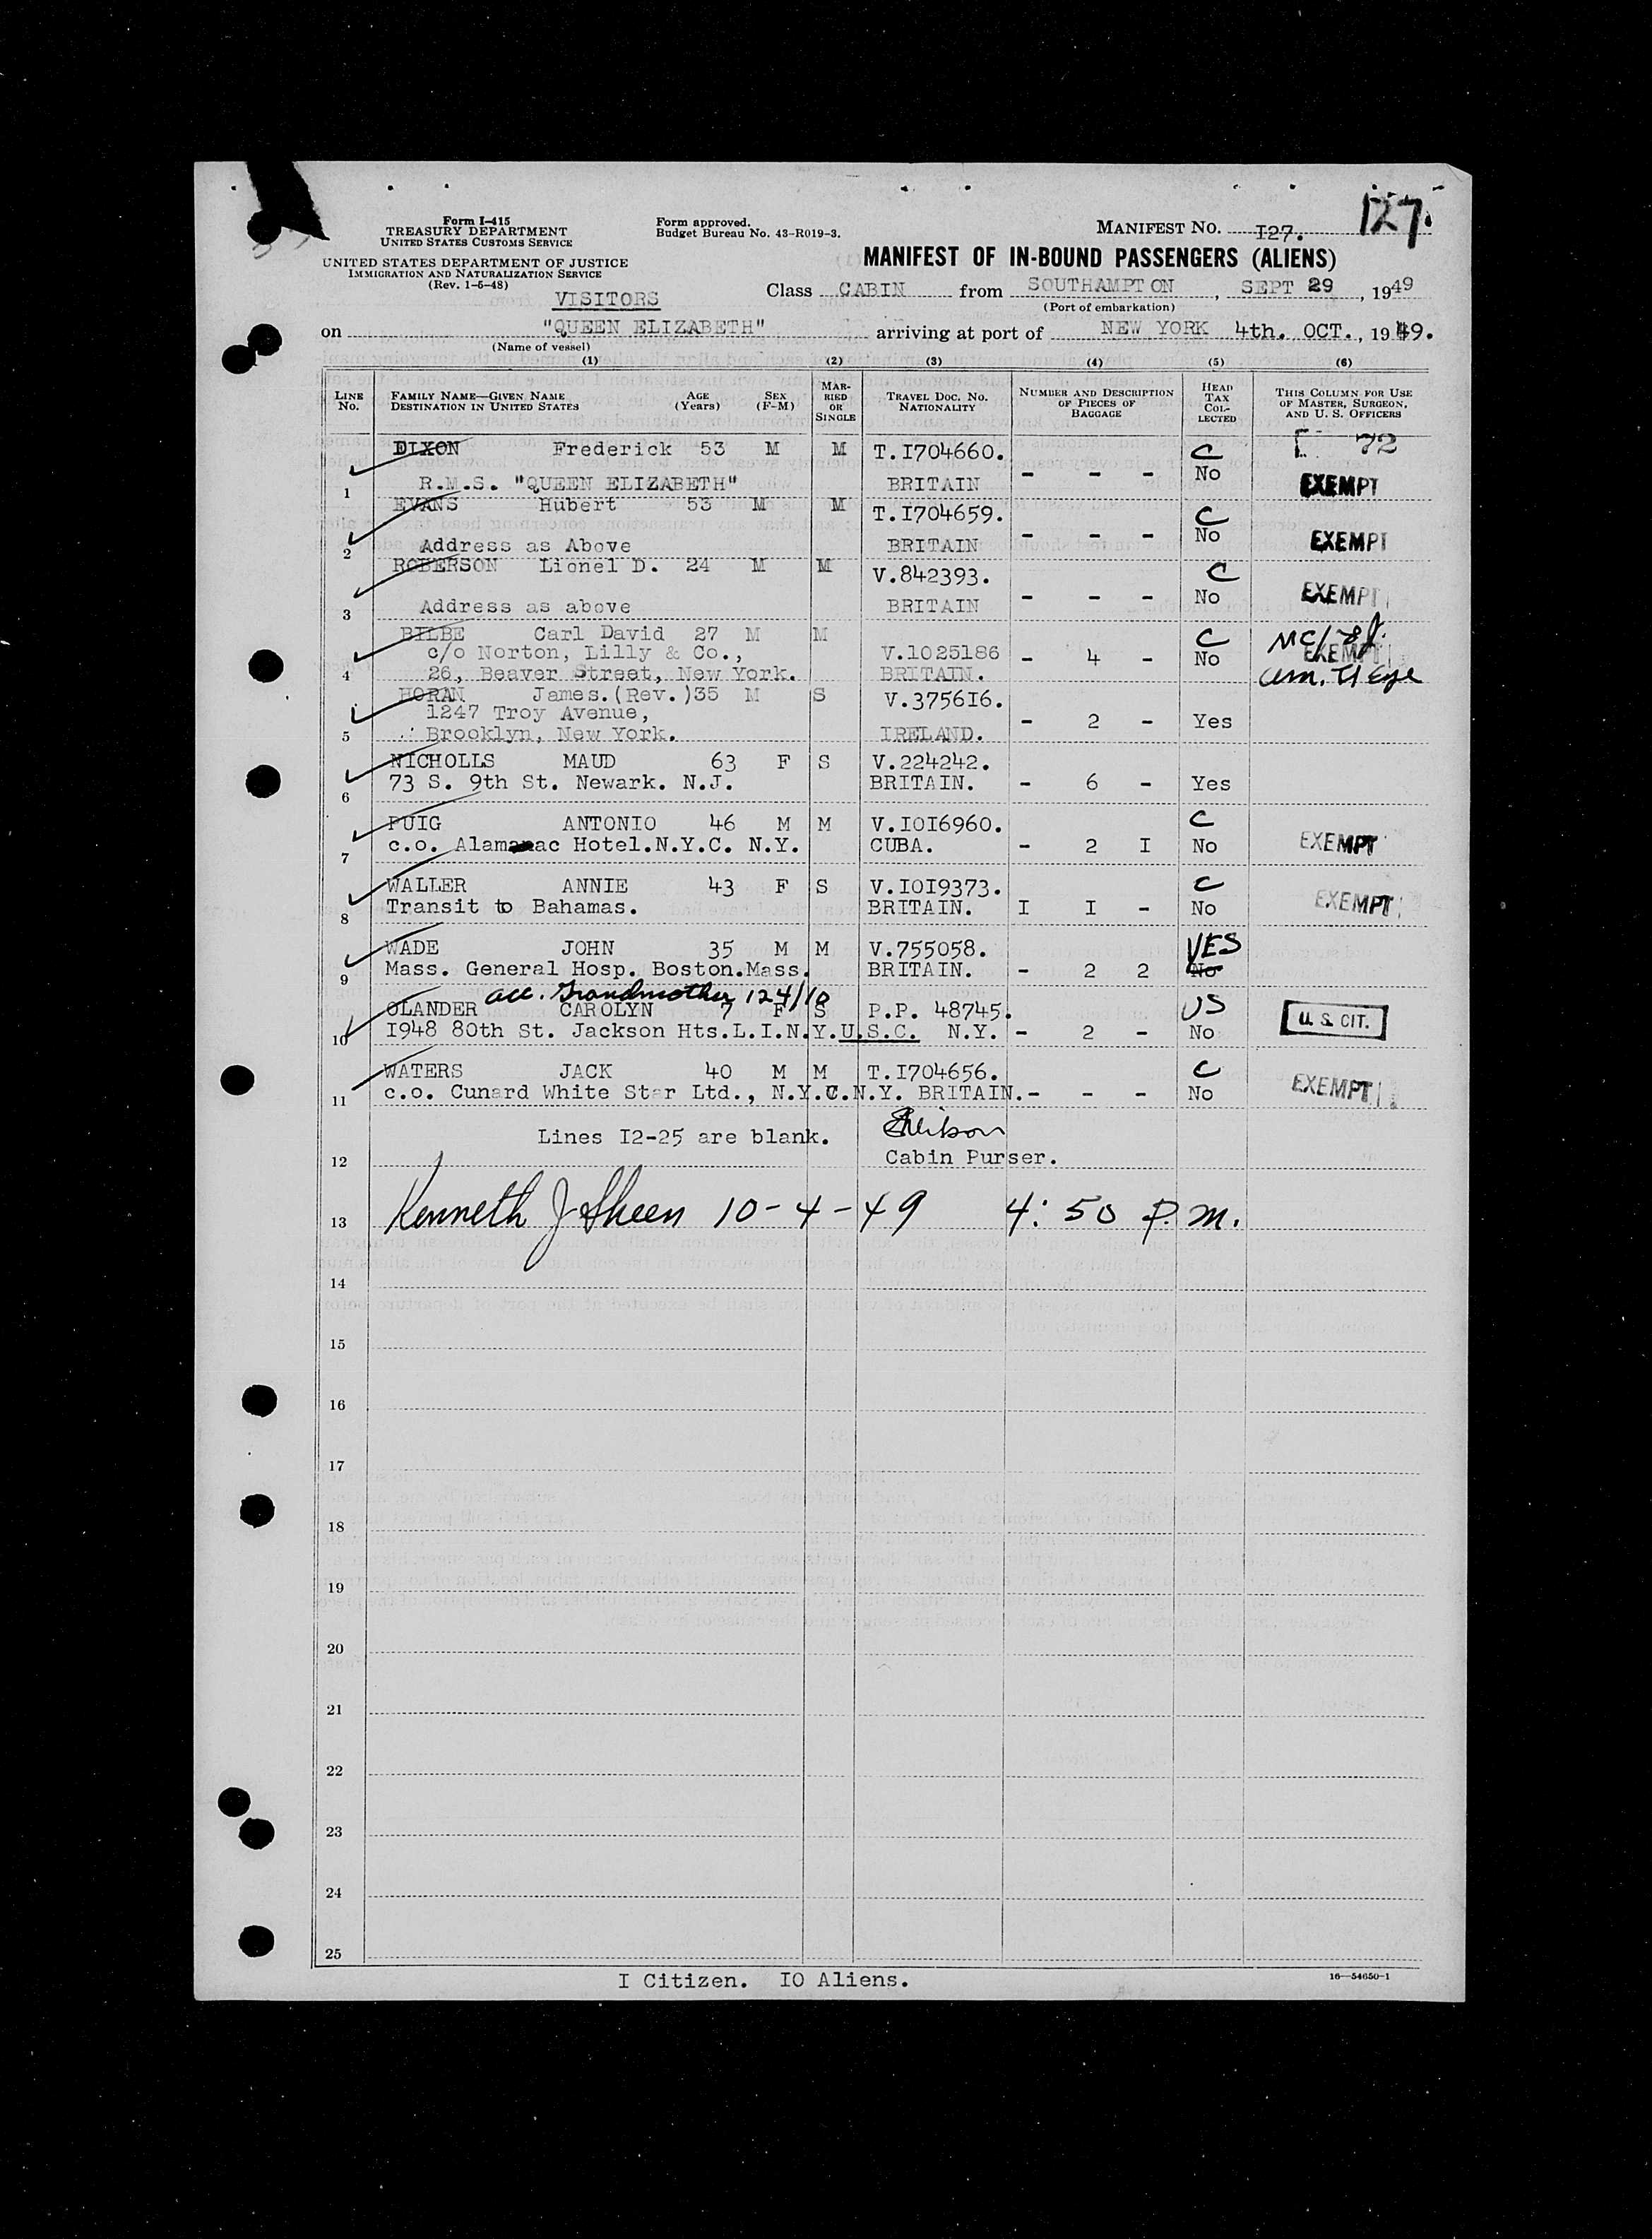 127.
Form I-415
TREASURY DEPARTMENT
UNITED STATES CUSTOMS SERVICE
Form approved.
Budget Bureau No. 43-R019-3.
MANIFEST NO. I27.
UNITED STATES DEPARTMENT OF JUSTICE
IMMIGRATION AND NATURALIZATION SERVICE
(Rev. 1-5-48)
MANIFEST OF IN-BOUND PASSENGERS (ALIENS)
VISITORS
Class CABIN from SOUTHAMPTON, SEPT 29, 1949
(Port of embarkation)
on "QUEEN ELIZABETH" arriving at port of NEW YORK 4th. OCT., 1949.
(Name of vessel)
(1) (2) (3) (4) (5) (6)
LINE No. FAMILY NAME—GIVEN NAME DESTINATION IN UNITED STATES AGE (Years) SEX (F-M) MARRIED OR SINGLE TRAVEL DOC. NO. NATIONALITY NUMBER AND DESCRIPTION OF PIECES OF BAGGAGE HEAD TAX COLLECTED THIS COLUMN FOR USE OF MASTER, SURGEON, AND U. S. OFFICERS
DIXON Frederick 53 M M T.I704660. C 72
1 R.M.S. "QUEEN ELIZABETH" BRITAIN - - - No EXEMPT
EVANS Hubert 53 M M T.I704659. C
2 Address as Above BRITAIN - - - No EXEMPT
ROBERSON Lionel D. 24 M M V.842393. C
3 Address as above BRITAIN - - - No EXEMPT
BILBE Carl David 27 M M C
c/o Norton, Lilly & Co., V.1025186 - 4 - No EXEMPT
4 26, Beaver Street, New York. BRITAIN.
HORAN James.(Rev.)35 M S V.3756I6.
1247 Troy Avenue, - 2 - Yes
5 Brooklyn, New York. IRELAND.
NICHOLLS MAUD 63 F S V.224242.
6 73 S. 9th St. Newark. N.J. BRITAIN. - 6 - Yes
PUIG ANTONIO 46 M M V.IOI6960. C
7 c.o. Alamanac Hotel.N.Y.C. N.Y. CUBA. - 2 I No EXEMPT
WALLER ANNIE 43 F S V.IOI9373. C
8 Transit to Bahamas. BRITAIN. I I - No EXEMPT
WADE JOHN 35 M M V.755058. YES
9 Mass. General Hosp. Boston.Mass. BRITAIN. - 2 2 No
acc. Grandmother 124/10
OLANDER CAROLYN 7 F S P.P. 48745. US
10 I948 80th St. Jackson Hts.L.I.N.Y.U.S.C. N.Y. - 2 - No U. S. CIT.
WATERS JACK 40 M M T.I704656. C
11 c.o. Cunard White Star Ltd., N.Y.C.N.Y. BRITAIN.- - - No EXEMPT
Lines I2-25 are blank.
12 Cabin Purser.
13 Kenneth J Sheen 10-4-49 4:50 P.m.
14
15
16
17
18
19
20
21
22
23
24
25
I Citizen. IO Aliens.
16—54650-1